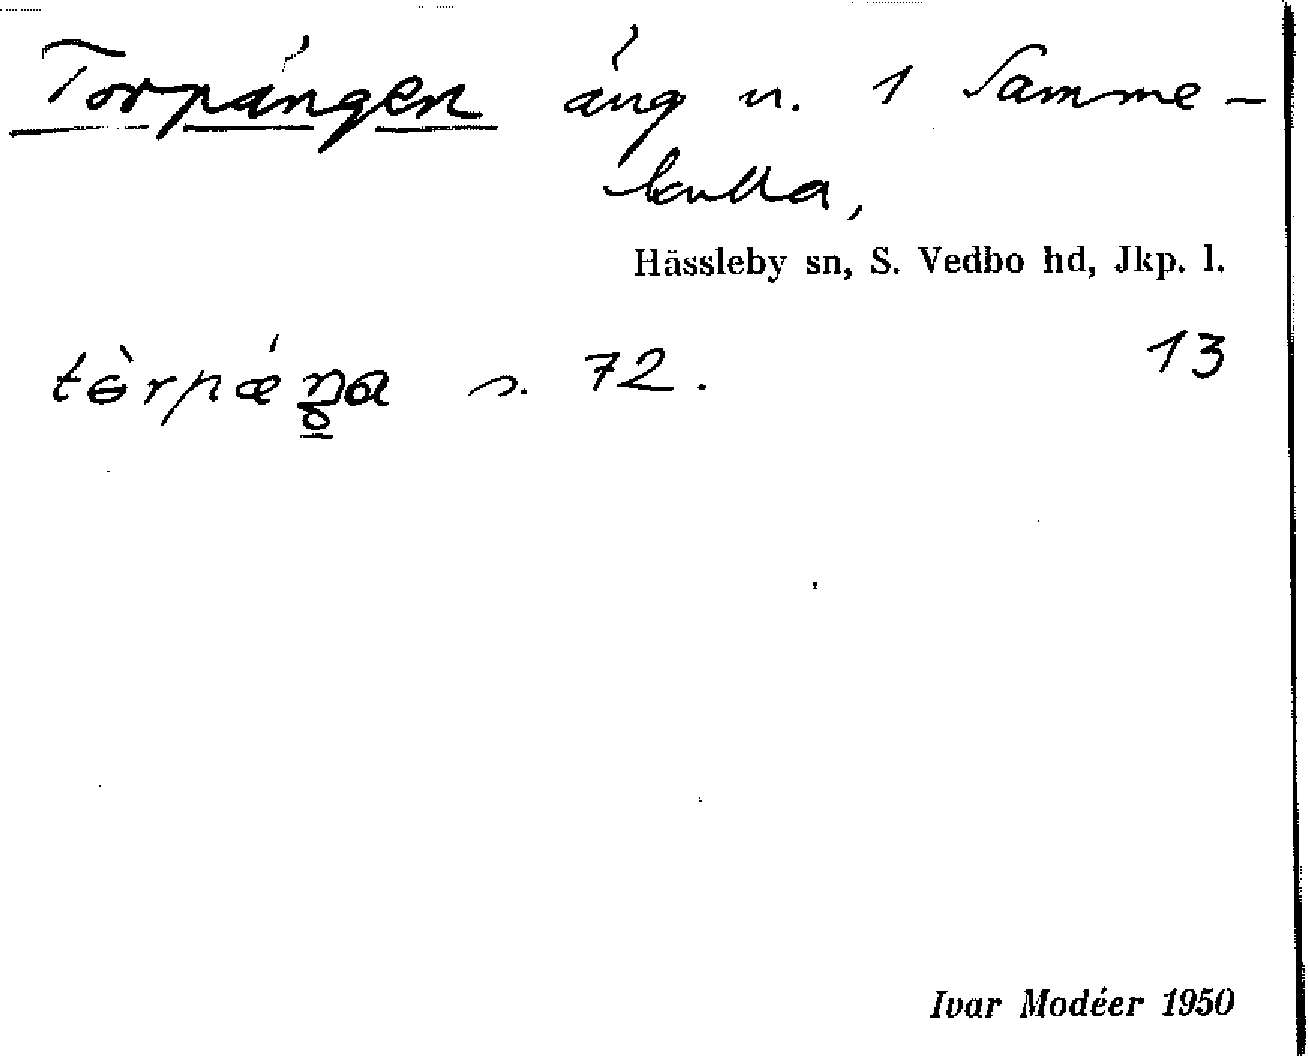 Torpängen äng n. 1 Samme-
kulla,
Hässleby sn, S. Vedbo hd, Jkp. l.
tɵ̀rpǽŋa s. 72. 13
Ivar Modéer 1950